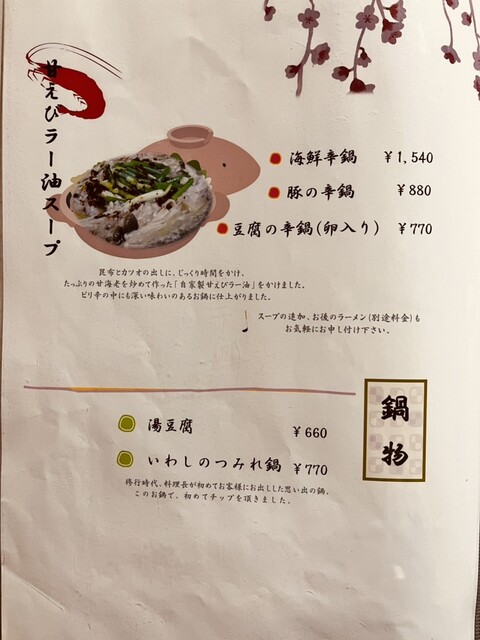 甘えびラー油スープ
海鮮辛鍋 ¥1,540
豚の辛鍋 ¥880
豆腐の辛鍋(卵入り) ¥770
昆布とカツオの出しに、じっくり時間をかけ、
たっぷりの甘海老を炒めて作った「自家製甘えびラー油」をかけました。
ピリ辛の中にも深い味わいのあるお鍋に仕上がりました。
スープの追加、お後のラーメン(別途料金)も
お気軽にお申し付け下さい。
鍋物
湯豆腐 ¥660
いわしのつみれ鍋 ¥770
修行時代、料理長が初めてお客様にお出しした思い出の鍋。
このお鍋で、初めてチップを頂きました。